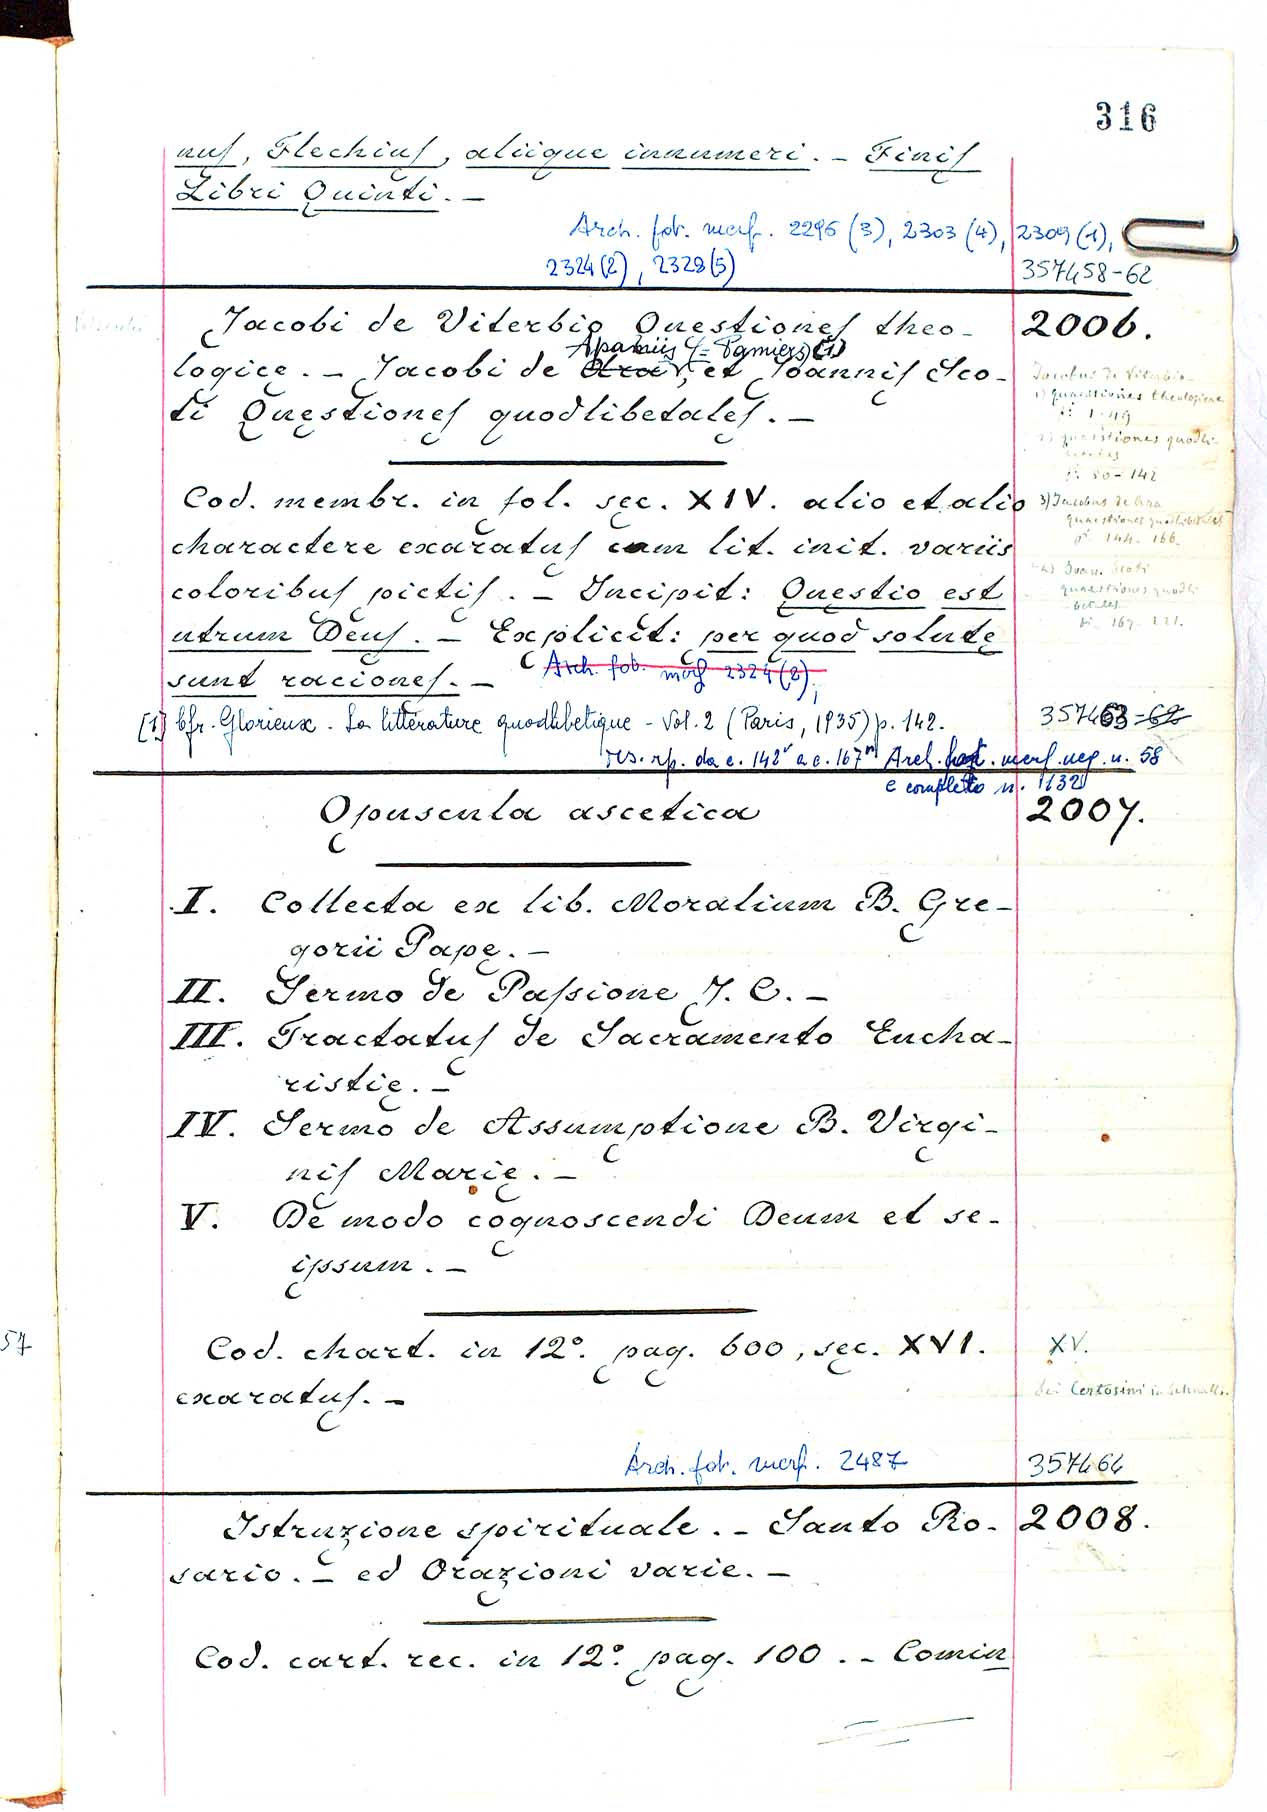 316
nus, Flechius, aliique innumeri. – Finis
Libri Quinti. –
Arch. fot. merf. 2296 (3), 2303 (4), 2309 (1),
2324 (2), 2328 (5)
357458-62
Jacobi de Viterbio Questiones theo- 2006.
Apamiis (= Pamiers) (1)
logice. – Jacobi de Ara, et Joannis Sco-
ti Questiones quodlibetales. –
Jacobus de Viterbio
1) quaestiones theologicae
ff. 1-49
2) quaestiones quodli-
betales
ff. 50-142
3) Jacobus de Ara
quaestiones quodlibetales
ff. 144-166
4) Joan. Scoti
quaestiones quodli-
betales
Cod. membr. in fol. sec. XIV. alio et alio
charactere exaratus cum lit. init. variis
coloribus pictis. – Incipit: Questio est
utrum Deus. – Explicit: per quod solute
sunt raciones. –
Arch. fot. merf 2324 (2),
[1] Cfr. Glorieux. La littérature quodlibetique - Vol. 2 (Paris, 1935) p. 142.
357463-62
ris. rp. da c. 142v a c. 167r Arch. fot. merf. neg. n. 58
e completo n. 1132
Opuscula ascetica 2007.
I. Collecta ex lib. Moralium B. Gre-
gorii Pape. –
II. Sermo de Passione J. C. –
III. Tractatus de Sacramento Eucha-
ristie. –
IV. Sermo de Assumptione B. Virgi-
nis Marie. –
V. De modo cognoscendi Deum et se-
ipsum. –
57
Cod. chart. in 12°. pag. 600, sec. XVI. XV.
exaratus. –
dei Certosini in Schnals.
Arch. fot. merf. 2487 357464
Istruzione spirituale. – Santo Ro- 2008.
sario. – ed Orazioni varie. –
Cod. cart. rec. in 12°. pag. 100. – Comin